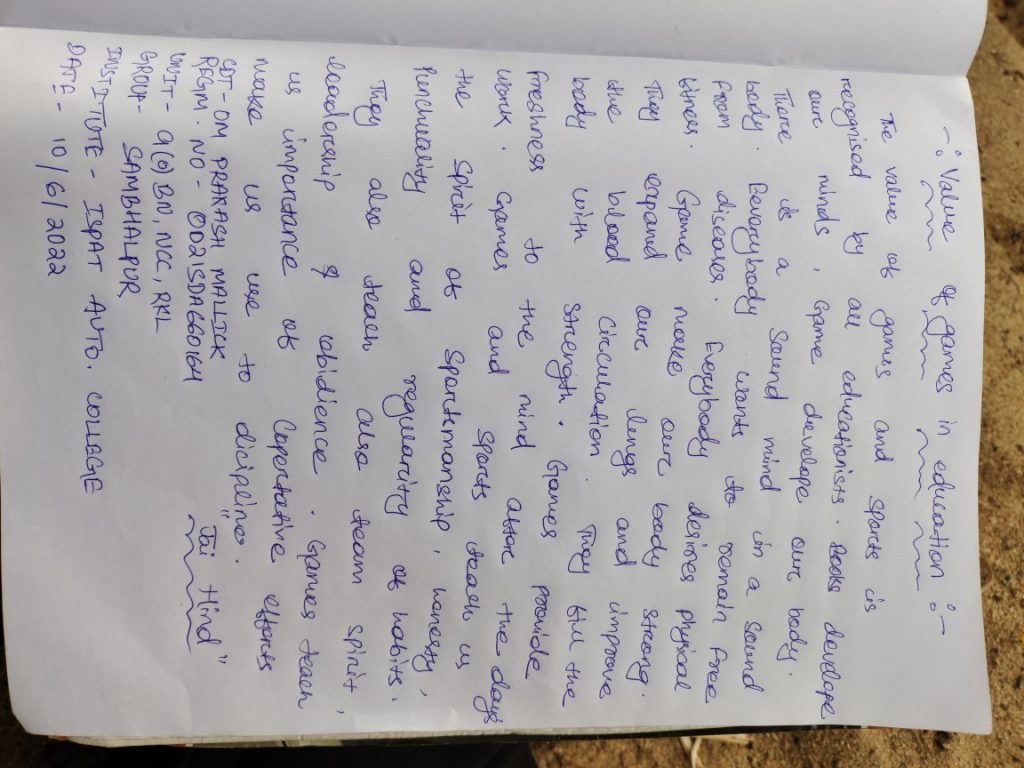 -: Value of games in education :-
The value of games and sports is
recognised by all educationists. Books develope
our minds, Game develope our body.
There is a Sound mind in a Sound
body. Beverybody wants to remain free
from diseases. Everybody desires physical
fitness. Game make our body strong.
They expand our lungs and improve
the blood circulation. They fill the
body with strength. Games provide
freshness to the mind after the day's
work. Games and sports teach us
the Spirit of Sportsmanship, honesty,
Punctuality and regularity of habits.
They also teach also team spirit,
leadership & obidience. Games teach
us importance of Coprative efforts
make us use to dicipline.
"Jai Hind"
CDT- OM PRAKASH MALLICK
REGM. NO - OD21SDA660164
UNIT - 9(O) BN, NCC, RKL
GROUP- SAMBHALPUR
INSTITUTE - ISPAT AUTO. COLLEGE
DATE - 10/6/2022